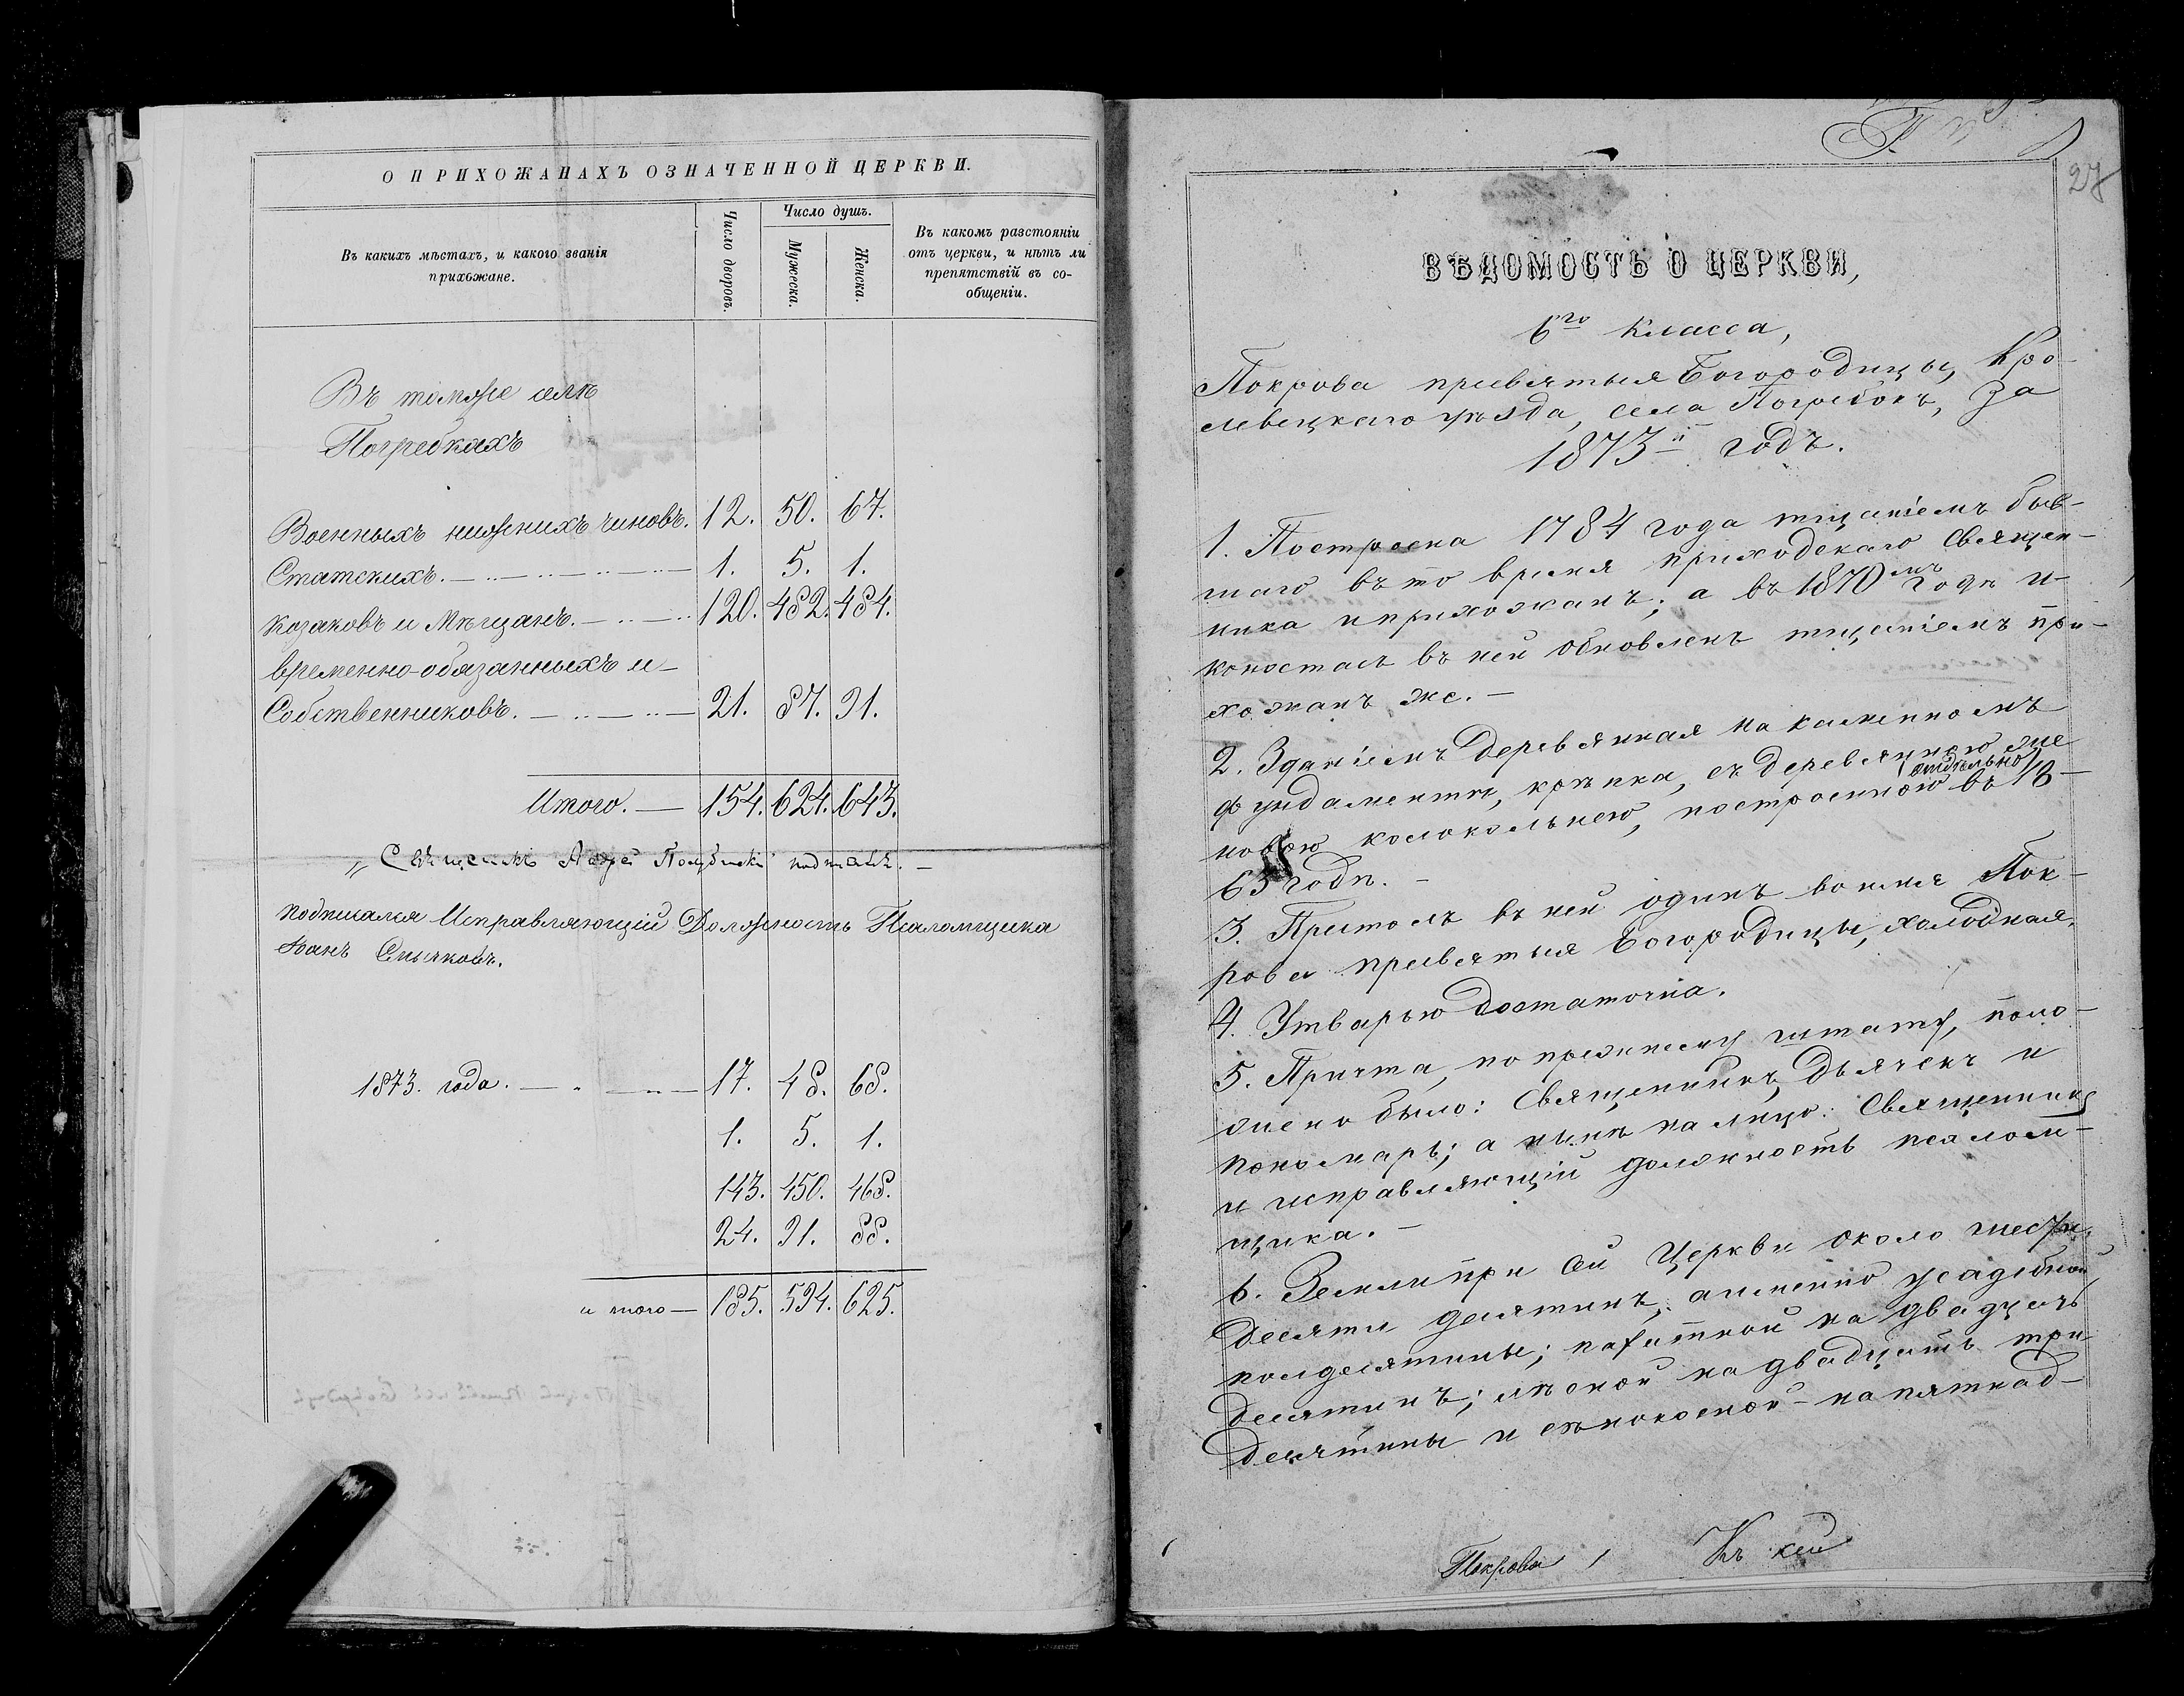 О ПРИХОЖАНАХЪ ОЗНАЧЕННОЙ ЦЕРКВИ.
Въ какихъ мѣстахъ, и какого званія
прихожане.
Число дворовъ.
Число душъ.
Мужеска.
Женска.
Въ какомъ разстояніи
отъ церкви, и нѣтъ ли
препятствій въ со-
общеніи.
Въ томъ же селѣ
Погребкахъ
Военныхъ нижнихъ чиновъ. 12. 50. 67.
Статскихъ. 1. 5. 1.
Козаковъ и Мѣщанъ. 120. 482. 484.
временно-обязанныхъ и
Собственниковъ. 21. 87. 91.
Итого. 154. 624. 643.
Подписался Исправляющій Должность Псаломщика
Иванъ
1873. года. 17. 48. 68.
1. 5. 1.
143. 450. 468.
24. 91. 88.
итого 185. 594. 625.
27
ВѢДОМОСТЬ О ЦЕРКВИ,
6го класса,
Покрова пресвятыя Богородицы, Кро-
левецкаго уѣзда, села Погребокъ, За
1873й годъ.
1. Построена 1784 года тщаніемъ быв-
шаго въ то время приходскаго Священ-
ника и прихожанъ; а въ 1870мъ годѣ и-
коностасъ въ ней обновленъ тщаніемъ при-
хожанъ же. –
2. Зданіемъ деревянная на каменномъ
фундаментѣ, крѣпка, съ деревянною же
отдѣльно
новою колокольнею, построенною въ 18-
63 годѣ. –
3. Престолъ въ ней одинъ во имя Пок-
рова пресвятыя Богородицы, холодная.
4. Утварью достаточна.
5. Причта, по прежнему штату, поло-
жено было: Священникъ, Дьячекъ и
пономарь; а нынѣ на лицо: Священникъ
и исправляющій должность псалом-
щика. –
6. Земли при сей Церкви около шести-
десяти десятинъ, а именно усадебной
полдесятины; пахатной на двадцать
десятинъ; лѣсной на двадцать три
десятины и сѣнокосной – на пятнад-
Покрова
Къ сей